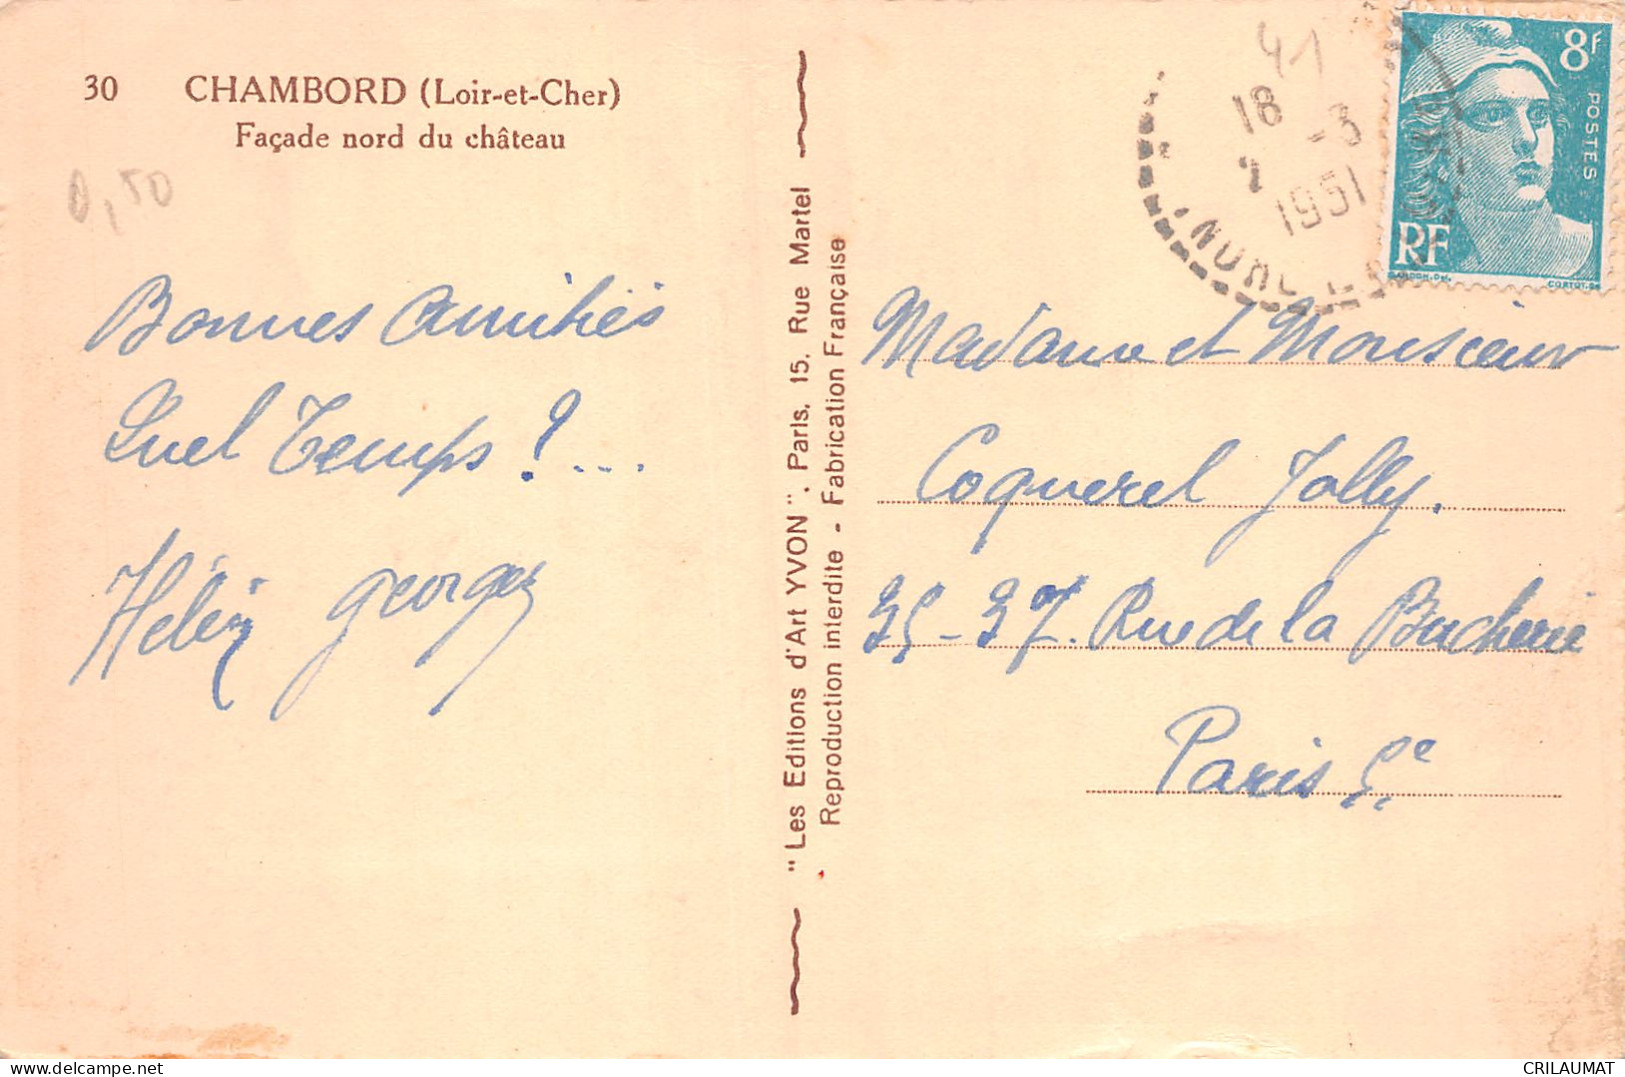 30 CHAMBORD (Loir-et-Cher)
Façade nord du château
0,50
Bonnes amitiés
Quel Temps ? ...
Hélén georges
"Les Editions d'Art YVON", Paris, 15, Rue Martel
Reproduction interdite - Fabrication Française
41
18
2 -3
1951
8F
POSTES
RF
Madame et Monsieur
Coquerel Jolly.
35-37. Rue de la Bucherie
Paris 5e
delcampe.net
CRILAUMAT